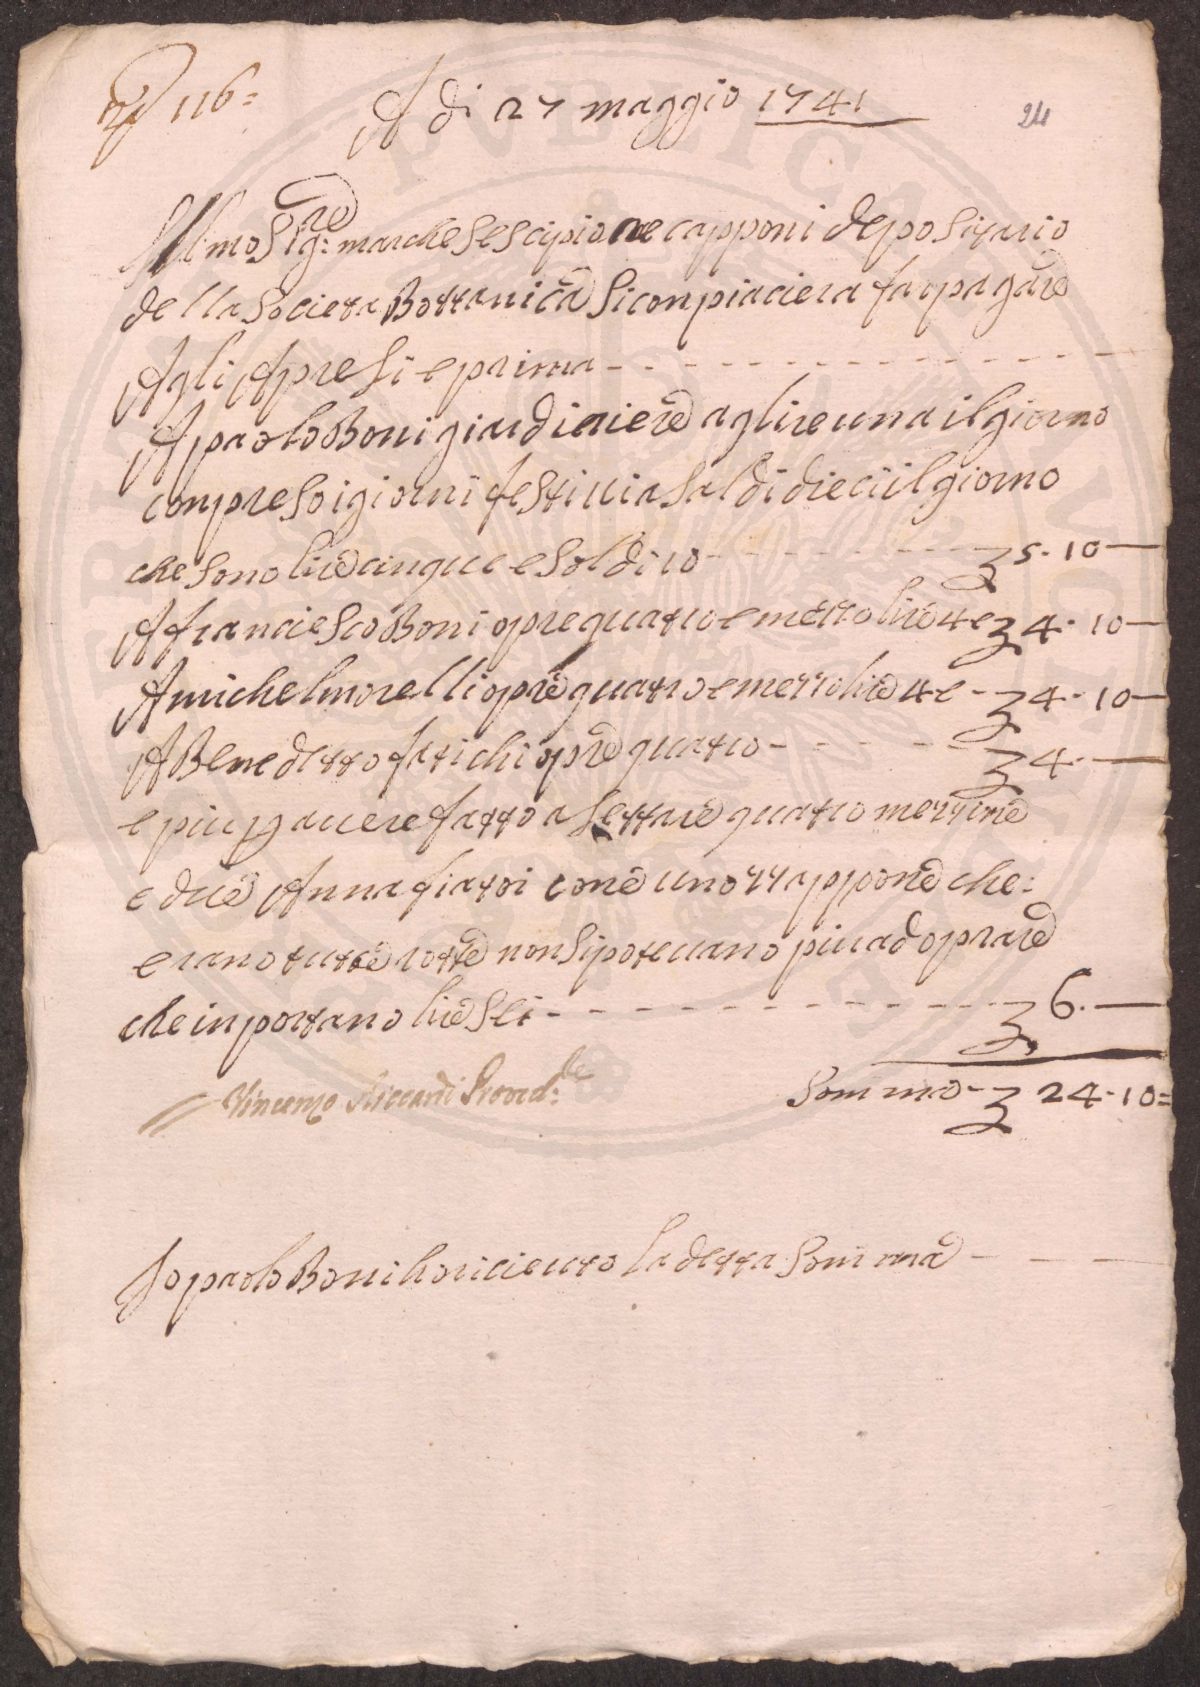 116=
A di 27 maggio 1741
24
Ill.mo Sig:re marchese scipione capponi depositario
della societa Bottanica si conpiaciera far pagare
Agli Apresi e prima
A paolo Boni giardiniere a glire una il giorno
conpreso i giorni festivi a saldi dieci il giorno
che sono lire cinque e soldi 10 5. 10
A franciesco Boni opre quatro e mezzo lire 4 e 4. 10
A michel morelli opre quatro e mezzo lire 4 e 4. 10
A Benedetto fatichi opre quatro 4.
e piu p avere fatto asettare quatro mezzine
e due Annafiatoi cone uno zzappone che:
erano tutte rotte non si potevano piu adoprare
che inportano lire sei 6.
Vincenzo Riccardi Proved:re
Somma 24. 10=
Io paolo Boni ho riceuto la detta somma